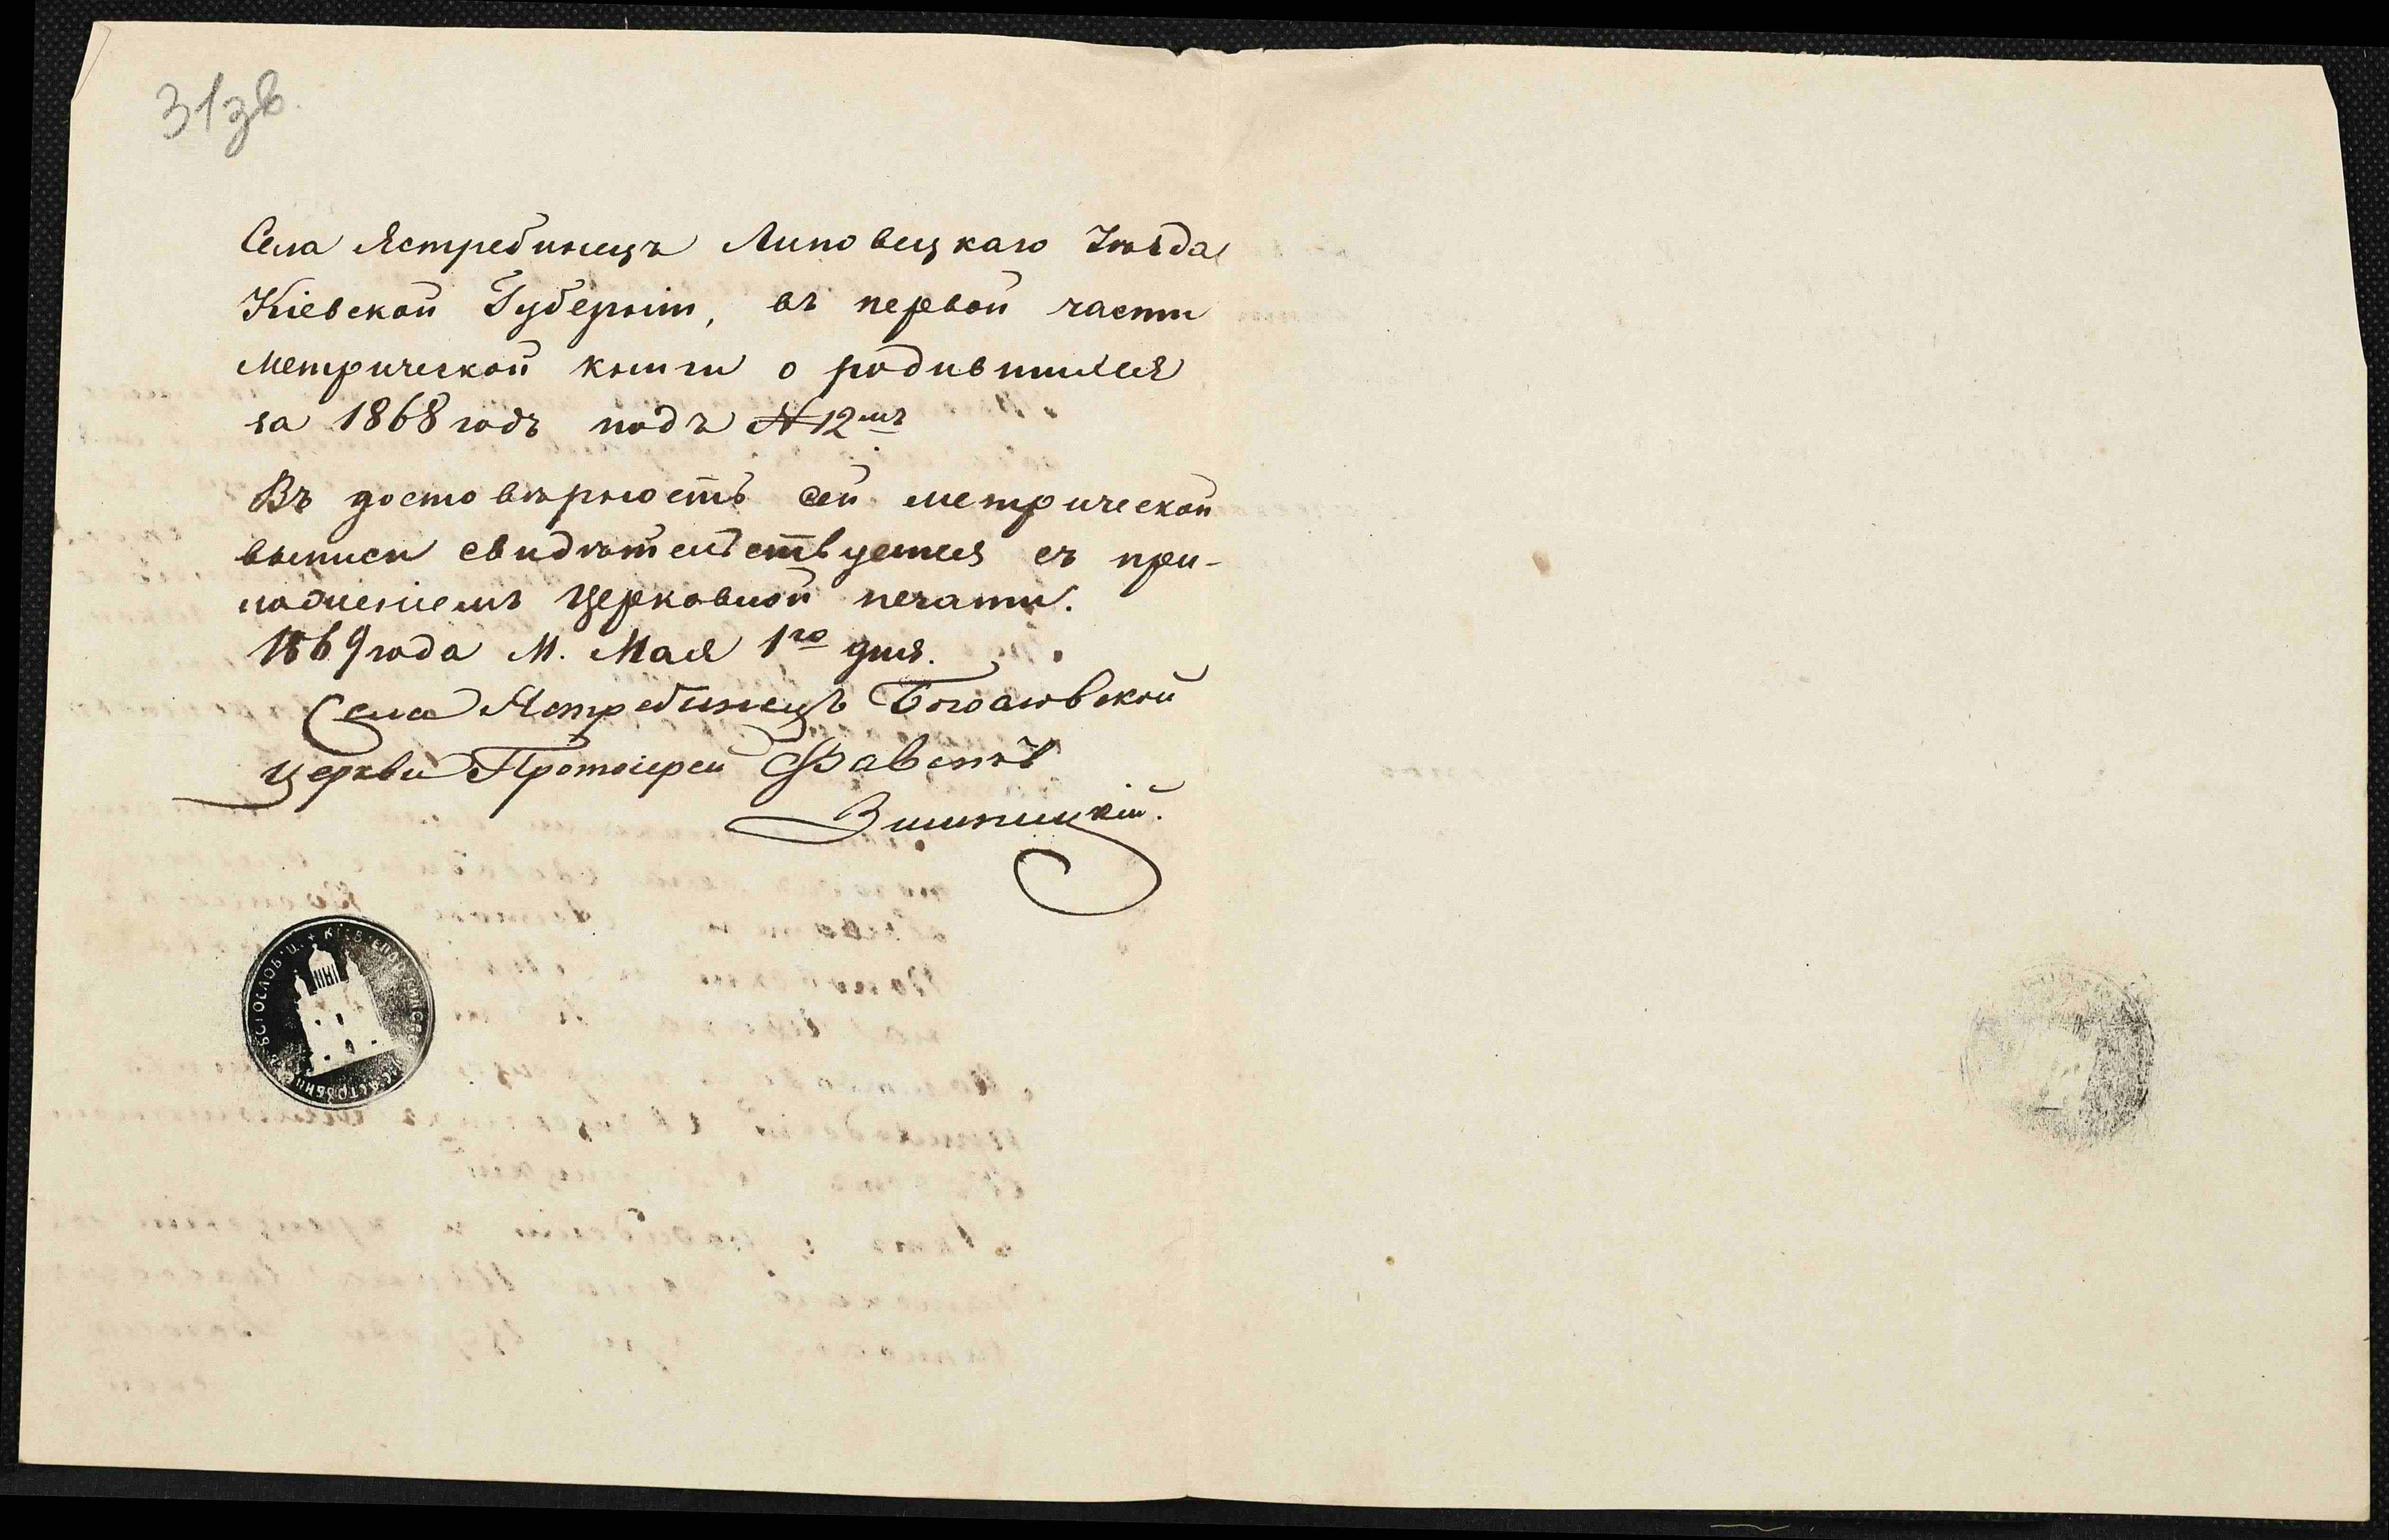 31зв.
Села Ястребинецъ Липовецкаго Уѣзда
Кіевской Губерніи, въ первой части
метрической книги о родившихся
за 1868 годъ подъ №12мъ
Въ достовѣрность сей метрической
выписи свидѣтельствуется съ при-
ложеніемъ Церковной печати.
1869 года М. Мая 1го дня.
Села Ястребинецъ Богословской
церкви Протоіерей